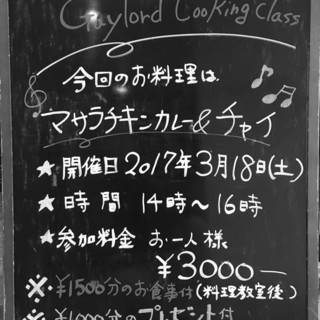 Gaylord Cooking Class
今回のお料理は
マサラチキンカレー&チャイ
★開催日2017年3月18日(土)
★時間 14時~16時
★参加料金 お一人様
¥3000ー
※¥1500分のお食事付(料理教室後)
※¥1000分のプレゼント付